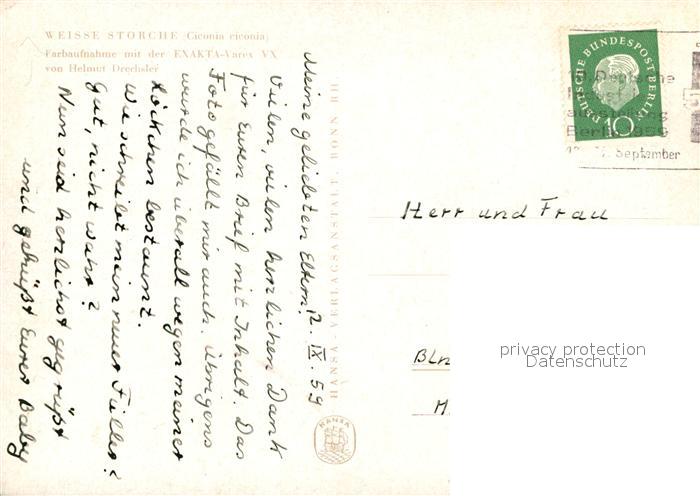 WEISSE STÖRCHE (Ciconia ciconia)
Farbaufnahme mit der EXAKTA-Varex VX
von Helmut Drechsler
12. IX. 59
Meine geliebten Eltern!
Vielen, vielen herzlichen Dank
für Euren Brief mit Inhalt. Das
Foto gefällt mir auch. Übrigens
wurde ich überall wegen meiner
Löckchen bestaunt.
Wie schreibt mein neuer Füller?
Gut, nicht wahr?
Nun seid herzlichst gegrüßt
und geküßt Eurer Baby
HANSA-VERLAGSANSTALT, BONN RH
HANSA
DEUTSCHE BUNDESPOST BERLIN
10
Deutsche
ausstellung
Berlin 1959
September
Herr und Frau
Bln
privacy protection
Datenschutz